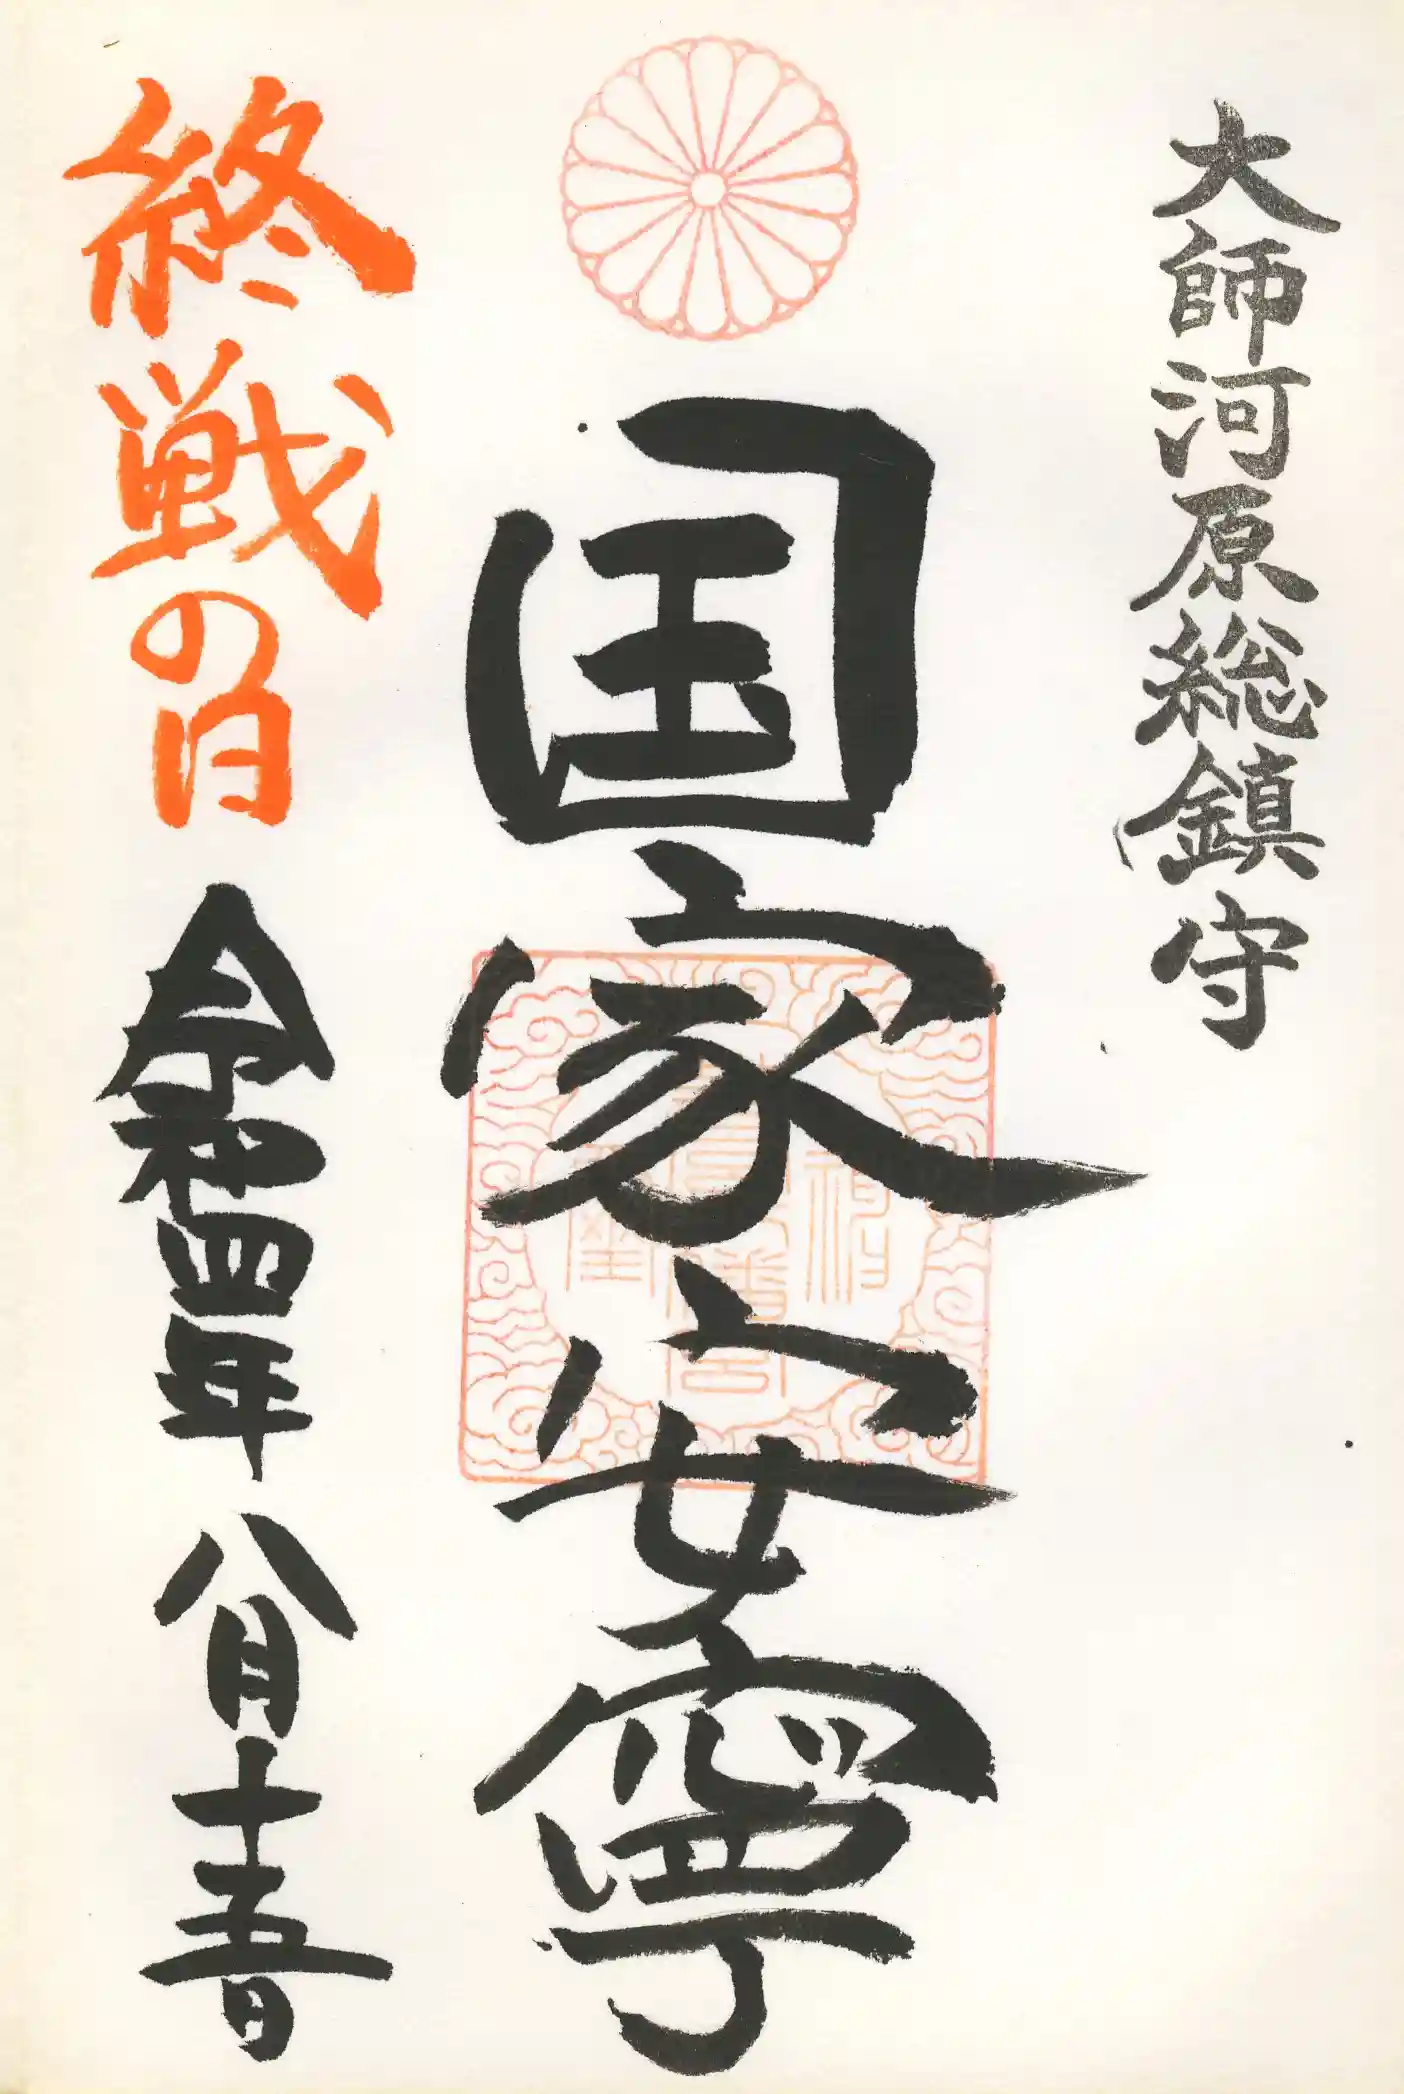 大師河原総鎮守
国家安寧
終戦の日
令和四年八月十五日